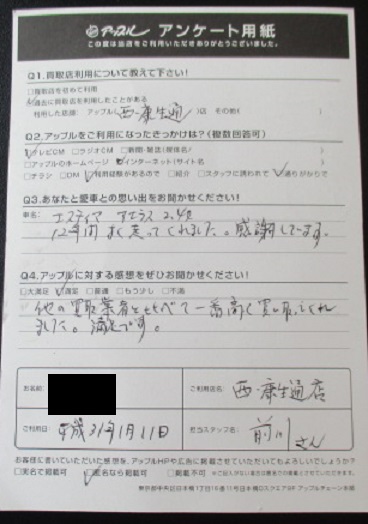 アップル アンケート用紙
この度は当店をご利用いただきありがとうございました。
Q1.買取店利用について教えて下さい!
□買取店を初めて利用
☑過去に買取店を利用したことがある
利用した店舗: アップル(西・康生通)店 その他( )
Q2.アップルをご利用になったきっかけは?(複数回答可)
☑テレビCM □ラジオCM □新聞・雑誌(媒体名: )
□アップルのホームページ ☑インターネット(サイト名 )
□チラシ □DM ☑利用経験があるので □紹介 □スタッフに誘われて ☑通りがかりで
Q3.あなたと愛車との思い出をお聞かせください!
車名: エスティマ アエラス 2.4X
12年間よく走ってくれました。感謝しています。
Q4.アップルに対する感想をぜひお聞かせください!
□大満足 ☑満足 □普通 □もう少し □不満
他の買取業者と比べて一番高く買い取ってくれ
ました。満足です。
お名前:
ご利用店名: 西・康生通店
ご利用日: 平成31年1月11日
担当スタッフ名: 前川さん
お客様に書いていただいた感想を、アップルHPや広告に掲載させていただいてもよろしいでしょうか?
□実名で掲載可 ☑匿名なら掲載可 □掲載不可